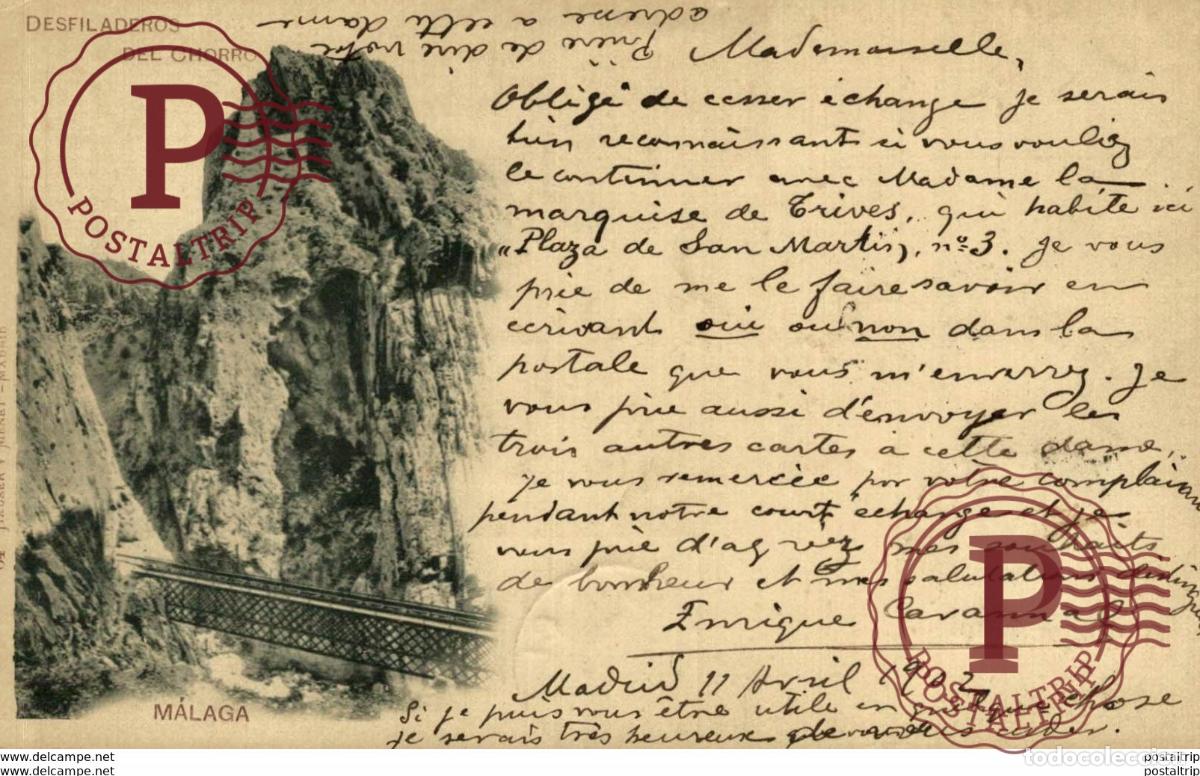 DESFILADEROS
DEL CHORRO
Prière de dire votre
adresse a cette dame
Mademoiselle,
Obligé de cesser échange je serais
bien reconnaissant si vous vouliez
le continuer avec Madame la
marquise de Trives, qui habite ici
„Plaza de San Martin, nº 3. Je vous
prie de me le faire savoir en
écrivant oui ou non dans la
postale que vous m'enverrez. Je
vous prie aussi d'envoyer les
trois autres cartes à cette dame.
Je vous remercie por votre
pendant notre court échange et je
vous prie d'agréez mes souhaits
de bonheur et mes salutations
Enrique
Madrid 11 Avril 1902
Si je puis vous être utile en quelque chose
je serais très heureux
MÁLAGA
64 HAUSER Y MENET - MADRID
P
POSTALTRIP
P
POSTALTRIP
todocoleccion
www.postaltrip.net
www.postaltrip.net
postaltrip
postaltrip